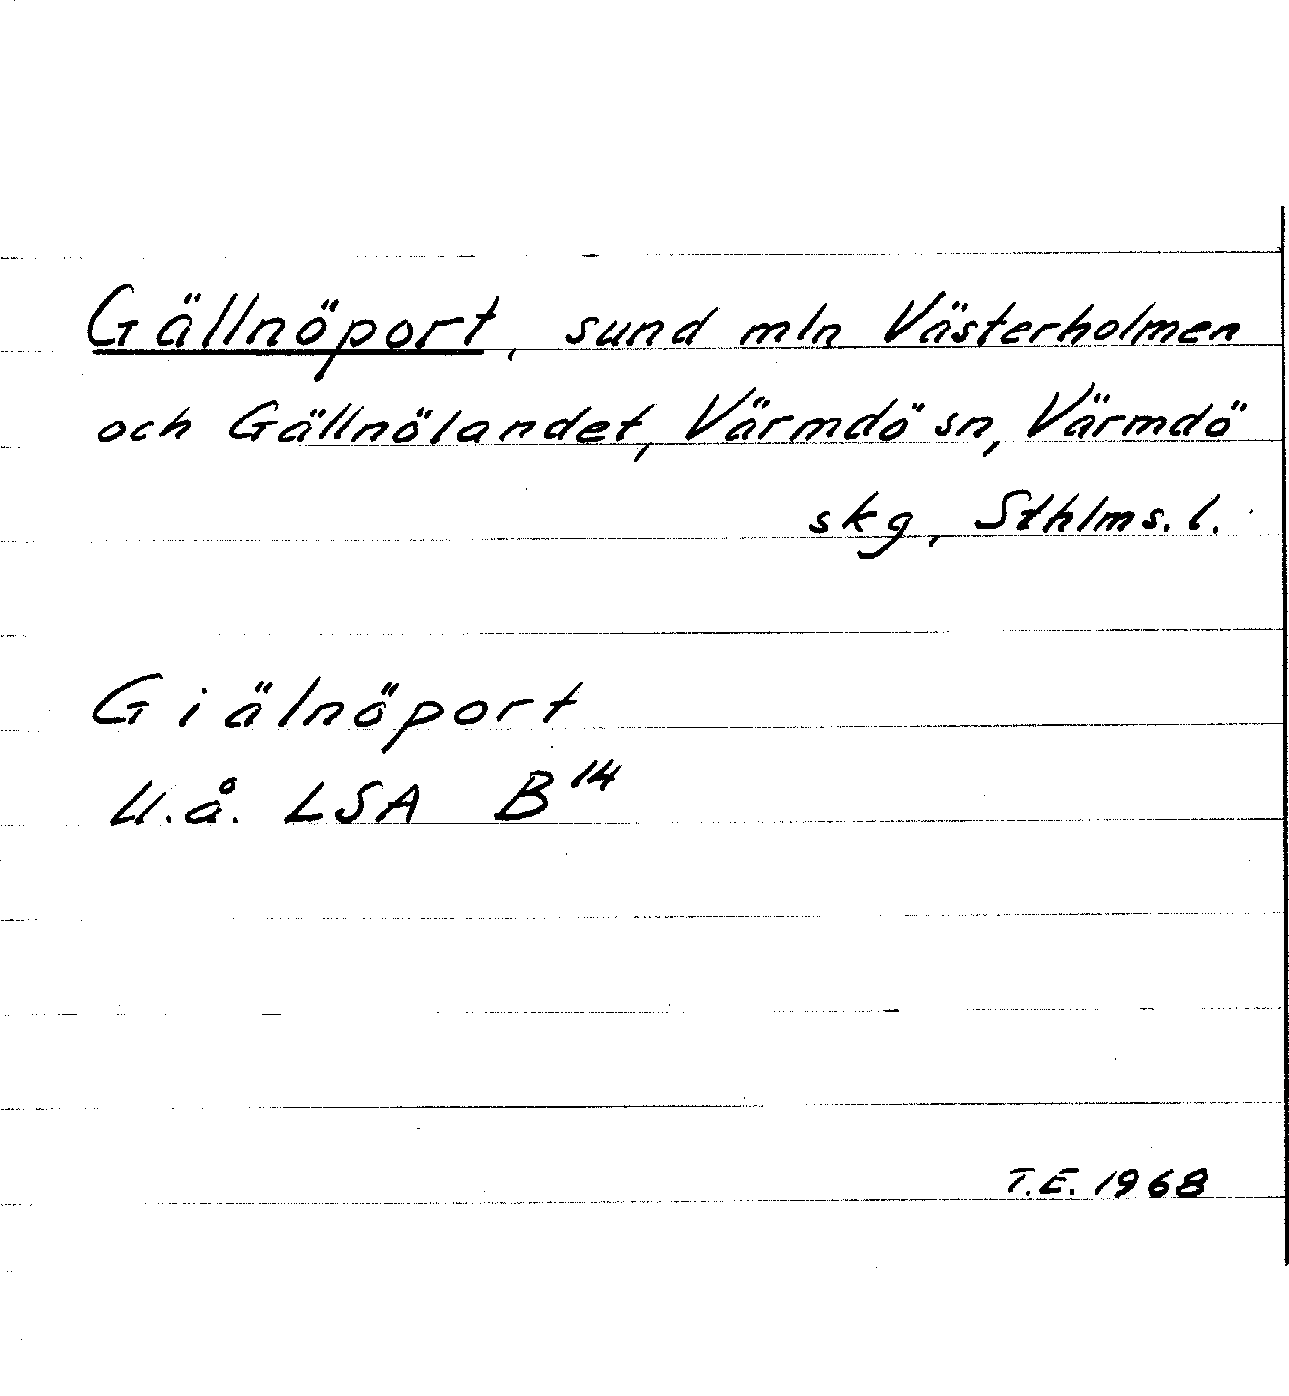 Gällnöport, sund mln Västerholmen
och Gällnölandet, Värmdö sn, Värmdö
skg, Sthlms. l.
Giälnöport
U.å. LSA B¹⁴
T.E. 1968